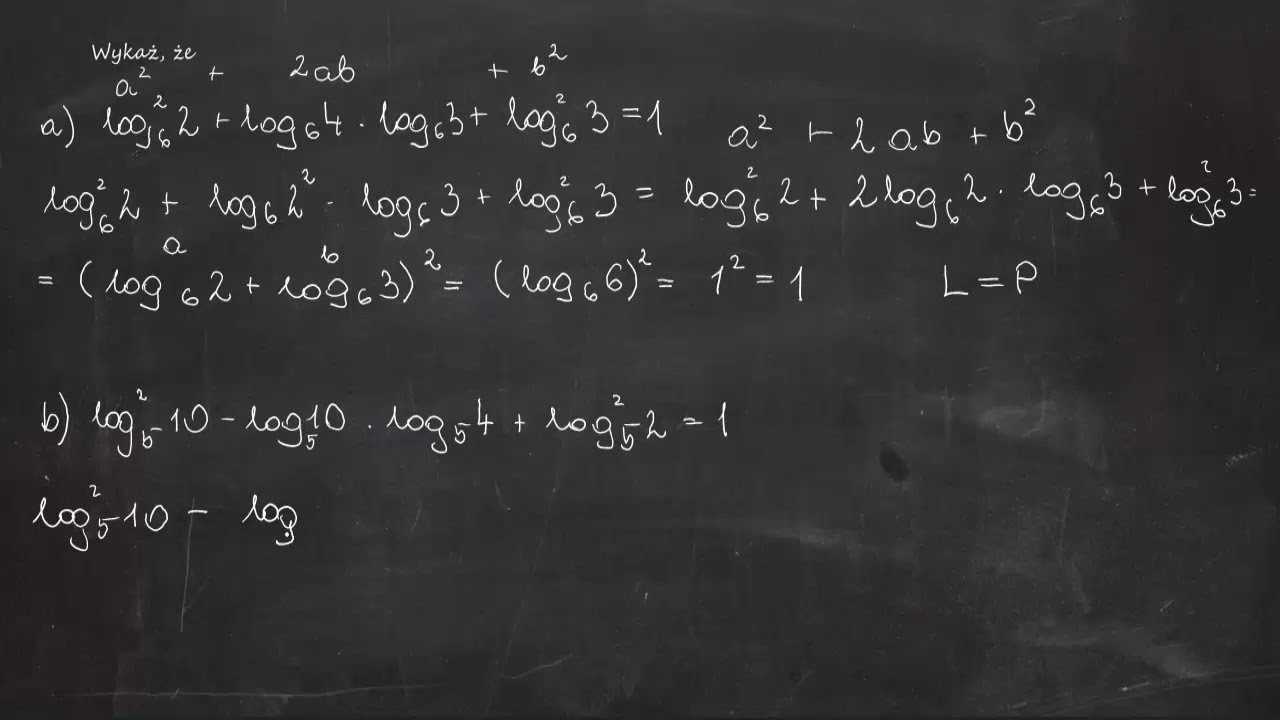 Wykaż, że
a² + 2ab + b²
a) log₆² 2 + log₆ 4 · log₆ 3 + log₆² 3 = 1
a² + 2ab + b²
log₆² 2 + log₆ 2² · log₆ 3 + log₆² 3 = log₆² 2 + 2 log₆ 2 · log₆ 3 + log₆² 3 =
a b
= (log₆ 2 + log₆ 3)² = (log₆ 6)² = 1² = 1 L = P
b) log₅² 10 - log₅ 10 · log₅ 4 + log₅² 2 = 1
log₅² 10 - log